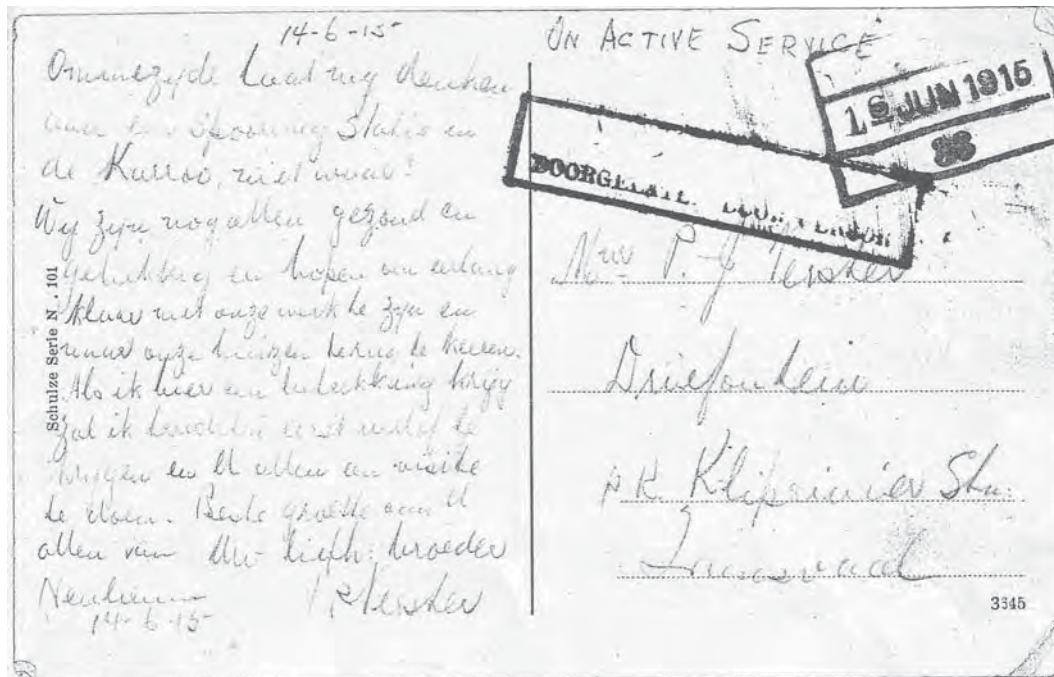 14-6-15
Ommezyde Laat my denken
aan een Spoorweg Statie en
de Karroo, niet waar?
Wy zyn nog allen gezond en
gelukkig en hopen om erlang
klaar met onze werk te zyn en
naar onze huizen terug te keeren.
Als ik hier een betrekking krijg
zal ik trachten eerst verlof te
krygen en U allen een visite
te doen. Beste groete aan U
allen van Uw liefh: broeder
14-6-15
Schulze Serie N. 101
ON ACTIVE SERVICE
JUN 1915
88
DOORGELATE. DOOR
Mev P. J.
Driefontein
P.K. Kliprivier Stn.
Transvaal
3545